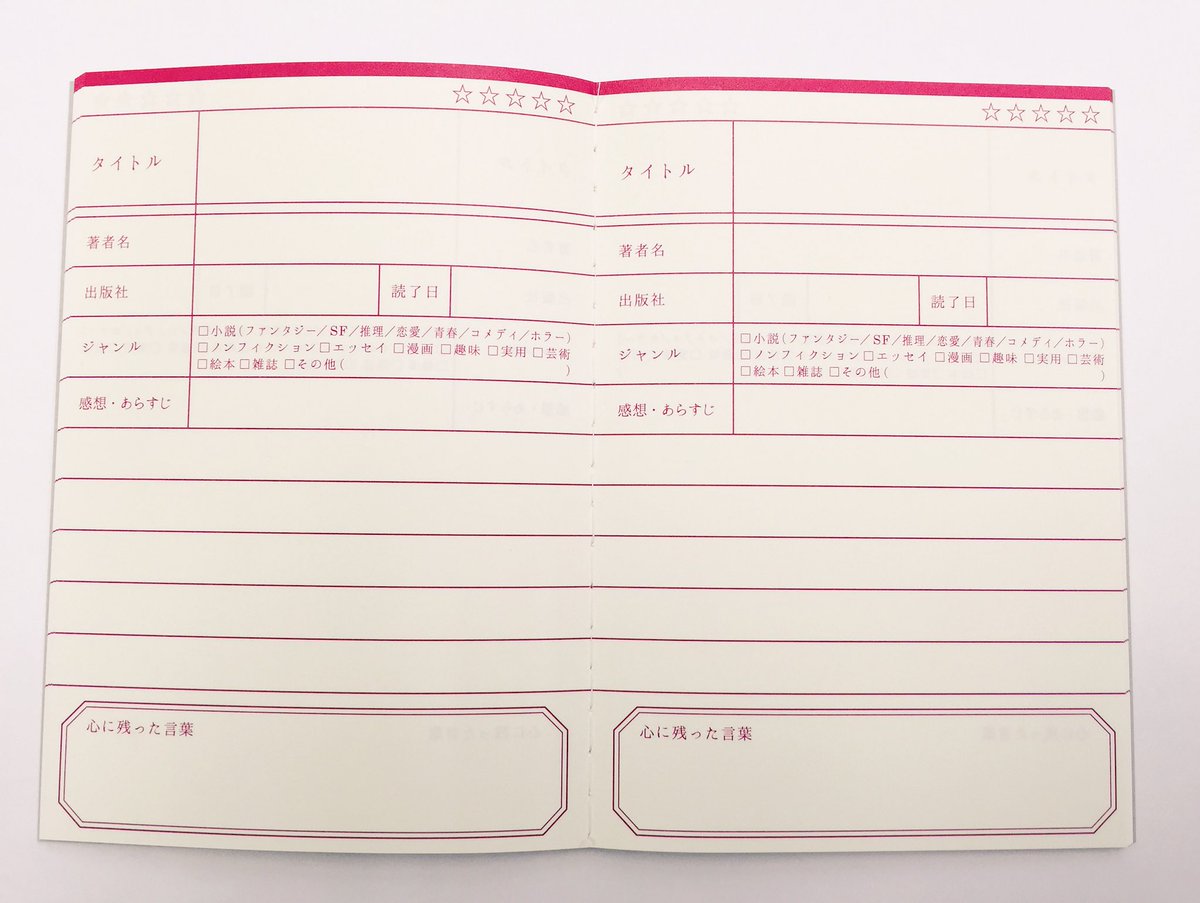 ☆☆☆☆☆
タイトル
著者名
出版社 読了日
ジャンル
□小説(ファンタジー/SF/推理/恋愛/青春/コメディ/ホラー)
□ノンフィクション□エッセイ □漫画 □趣味 □実用 □芸術
□絵本 □雑誌 □その他( )
感想・あらすじ
心に残った言葉
☆☆☆☆☆
タイトル
著者名
出版社 読了日
ジャンル
□小説(ファンタジー/SF/推理/恋愛/青春/コメディ/ホラー)
□ノンフィクション□エッセイ □漫画 □趣味 □実用 □芸術
□絵本 □雑誌 □その他( )
感想・あらすじ
心に残った言葉